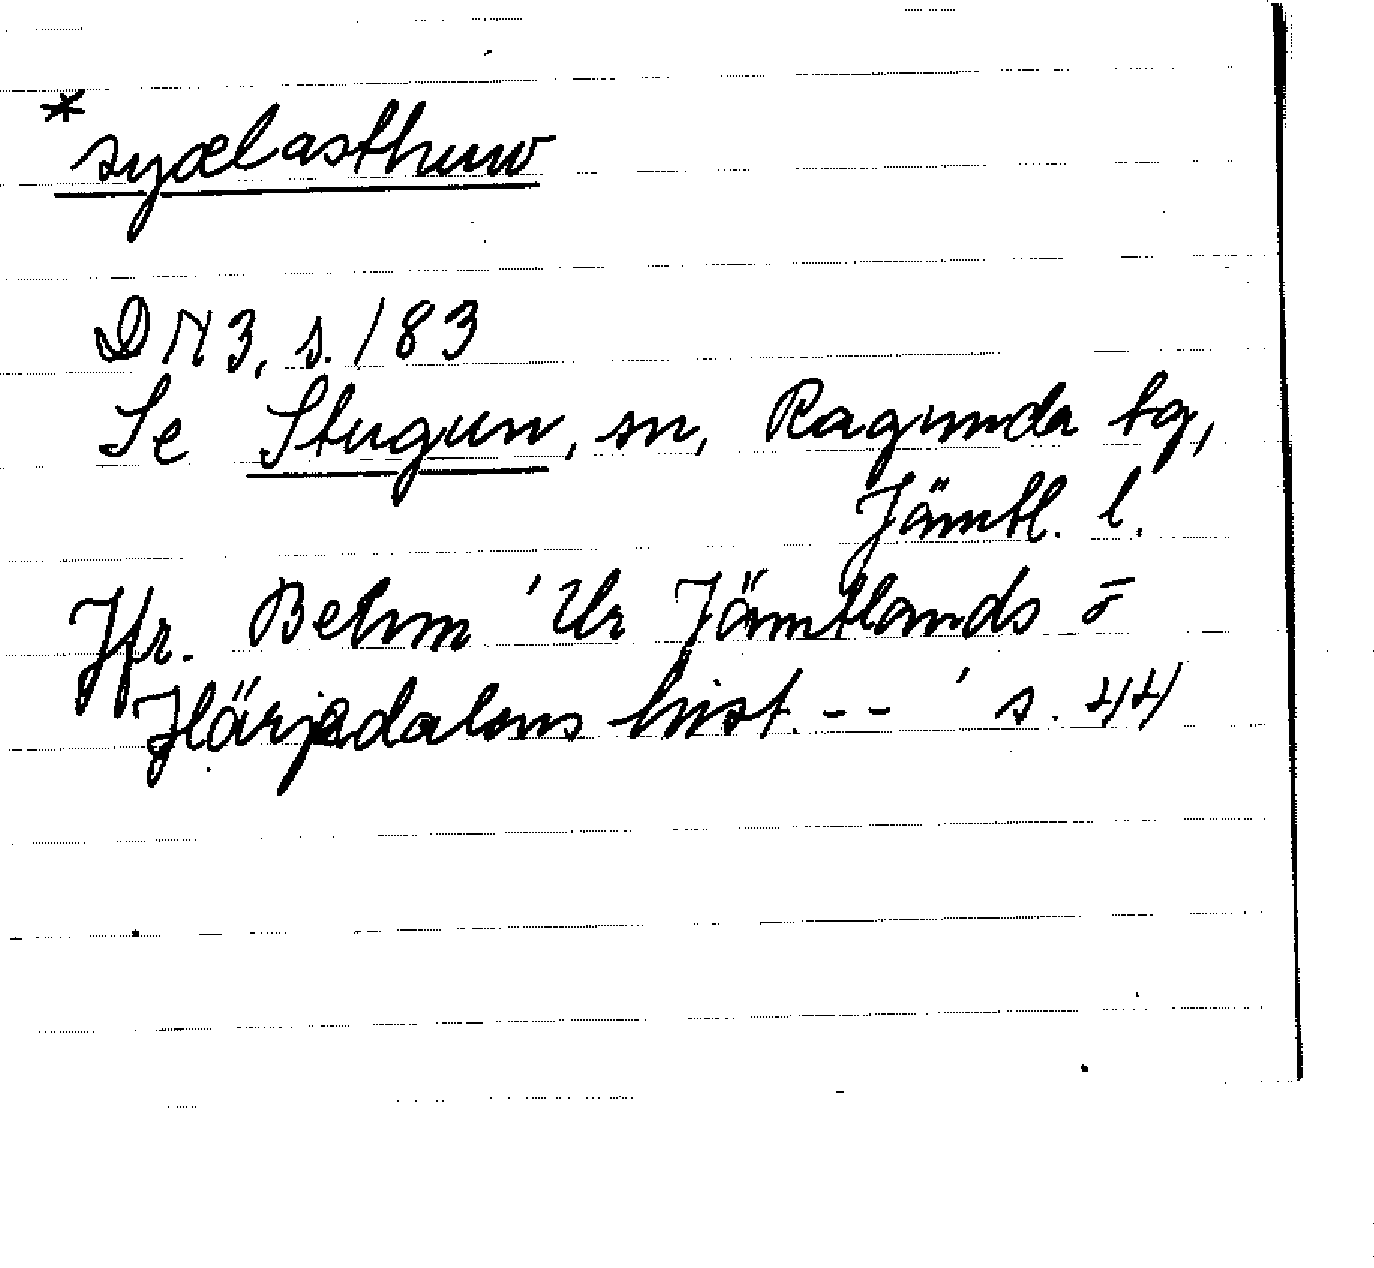 * syælasthuw
DN 3, s. 183
Se Stugun, sn, Ragunda tg,
Jämtl. l.
Jfr. Behm 'Ur Jämtlands o
Härjedalens hist. -- ' s. 44